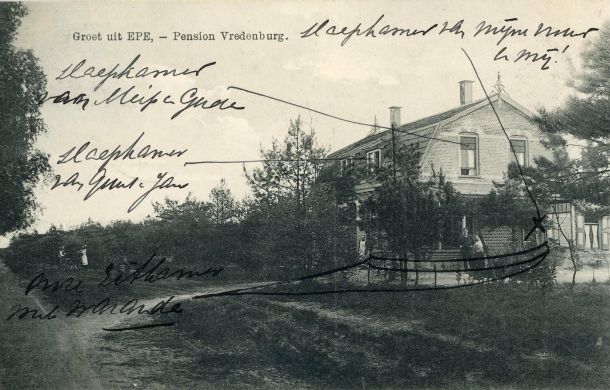 Groet uit EPE, - Pension Vredenburg.
slaapkamer van mijne vrouw
& mij!
slaapkamer
van Meip & Gude
slaapkamer
van Guus & Jan
onze Eetkamer
met waranda